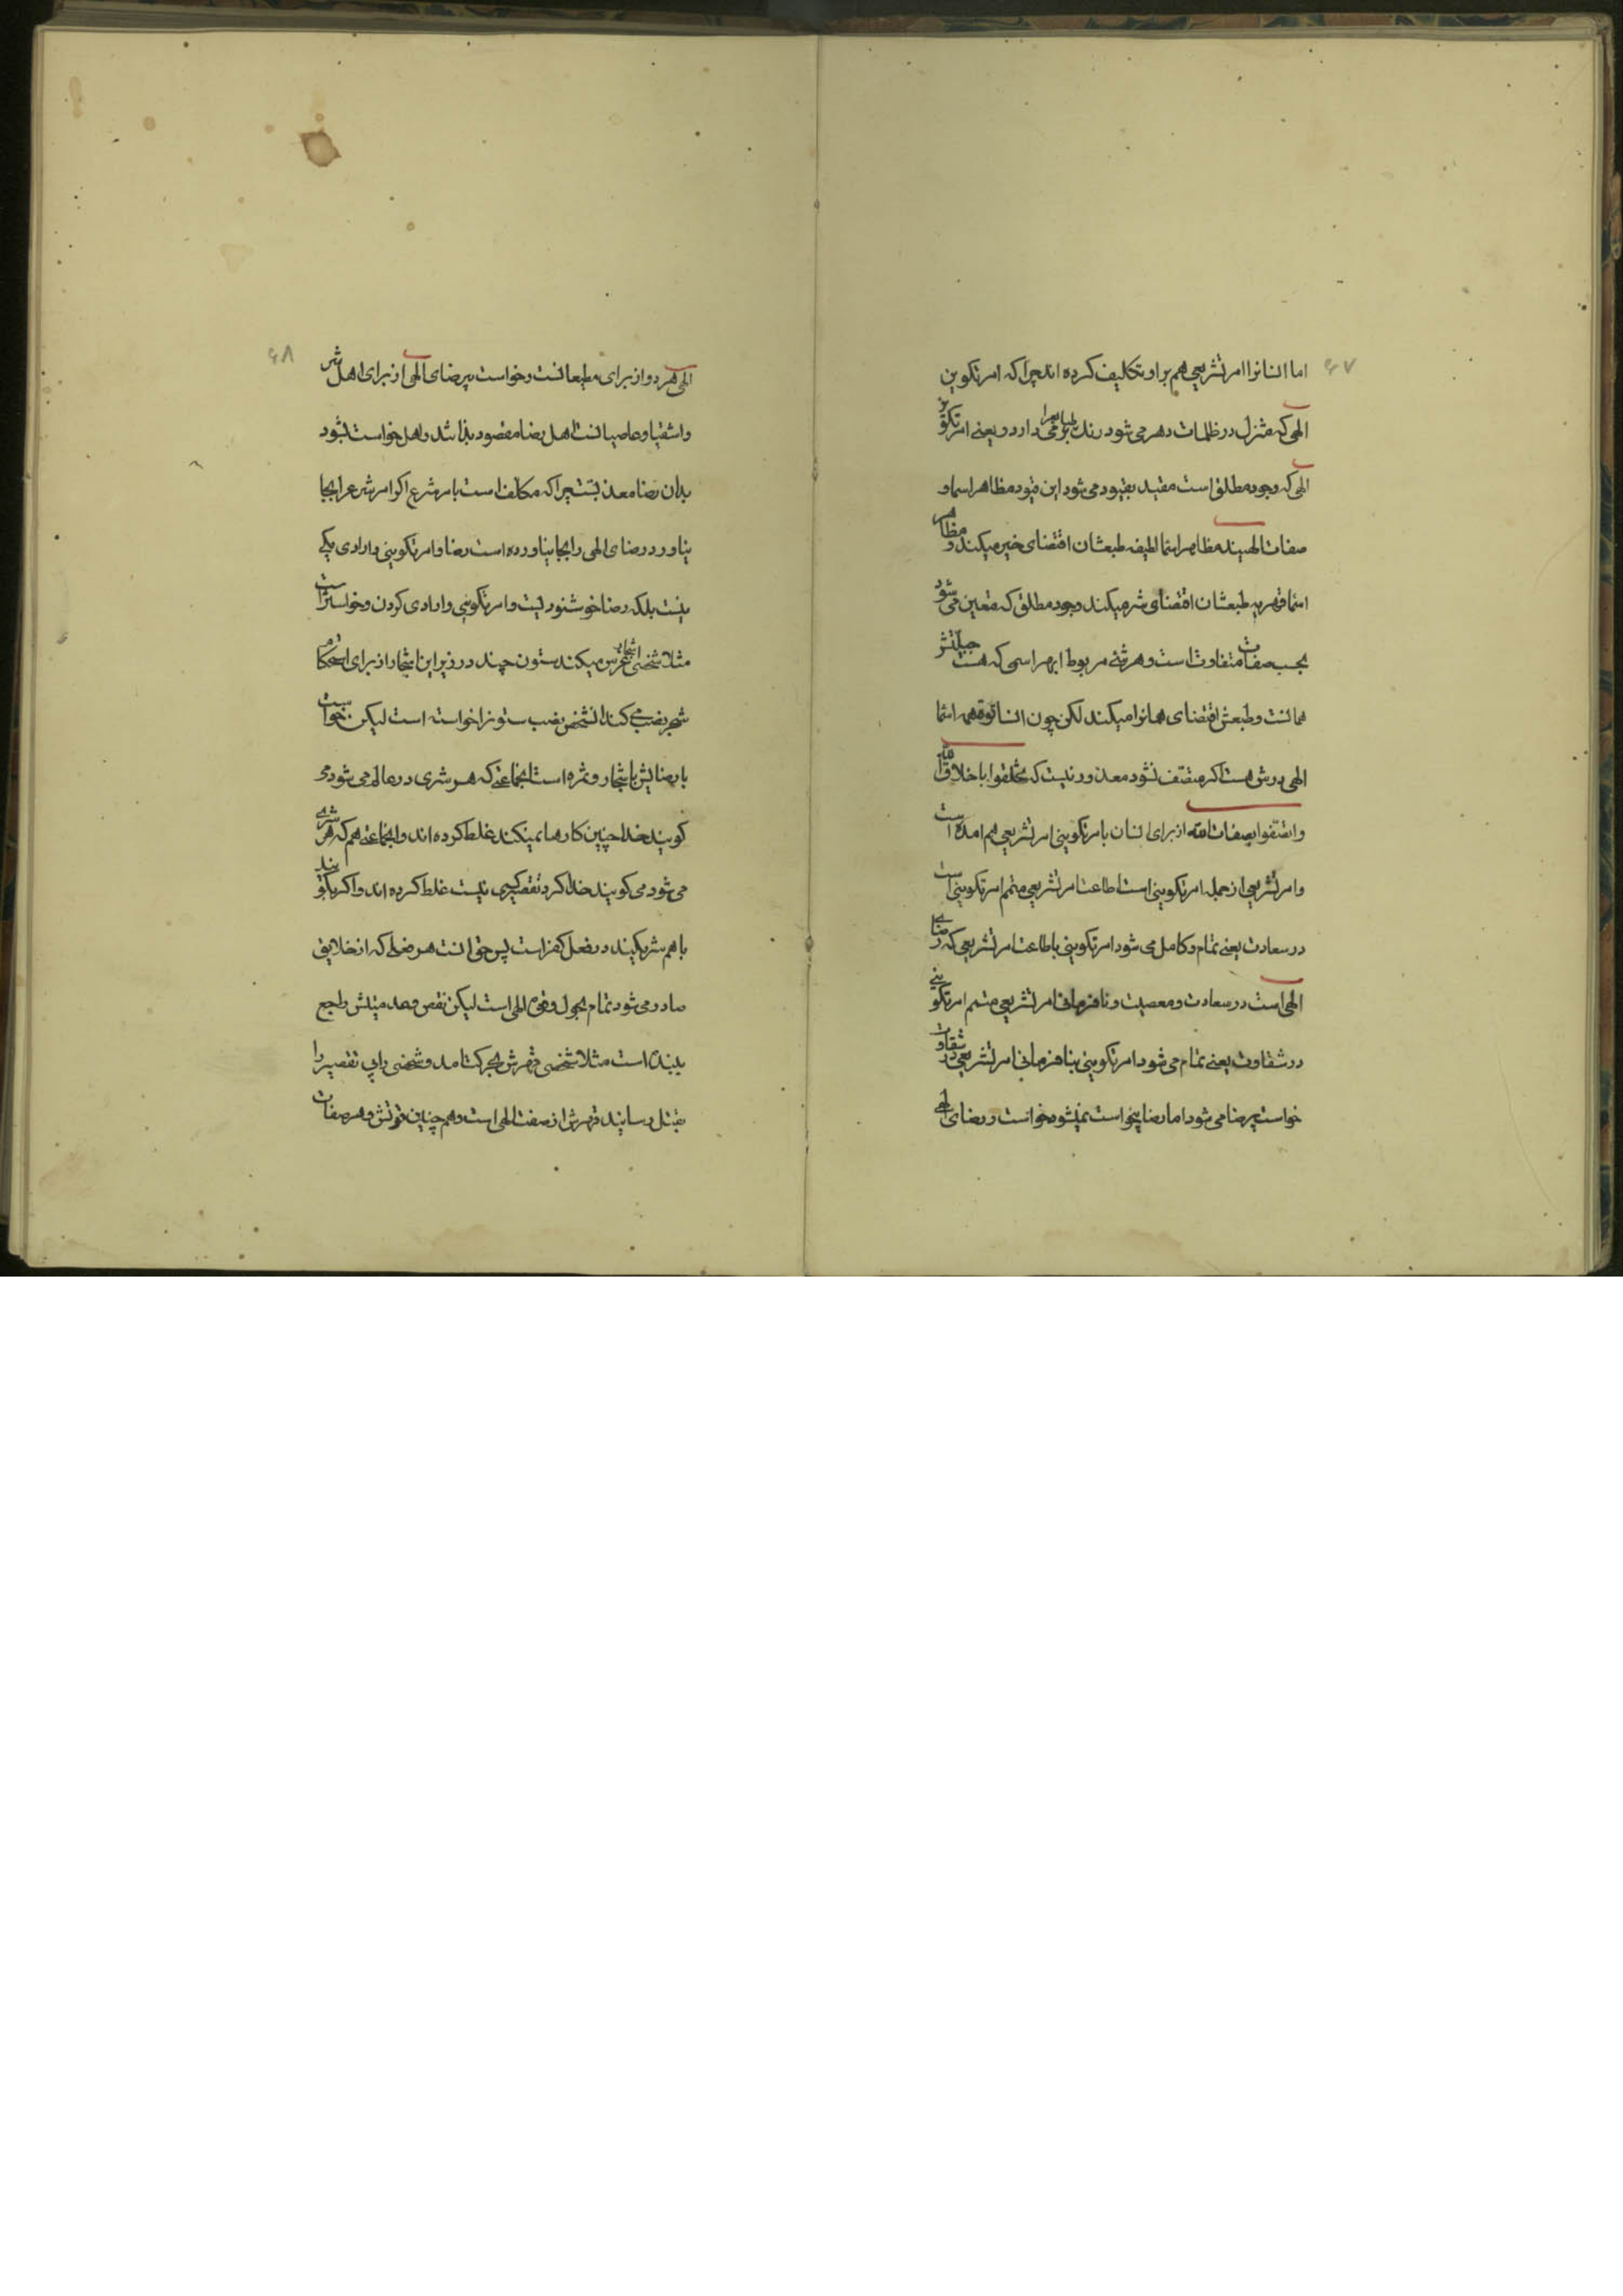 ۶۷
اما انسانرا امر تشریعی هم بر او تکالیف کرده اند چرا که امر تکوین
الهی که متنزل در ظلمات دهر می شود رنك طبایع را بر می دارد و یعنی امر تکوینی
الهی که وجود مطلق است مقید بقیود می شود این قیود مظاهر اسما و
صفات الهیند مظاهر اسما لطیفه طبعشان اقتضای خیر میکند و مظاهر
اسما قهریه طبعشان اقتضای شر میکند وجود مطلق که متعین می شود
بحسب صفات متفاوت است و هر شئ مربوط بهر اسمی که هست جبلتش
همانست و طبعش اقتضای همانرا میکند لکن چون انسان قوه همه اسما
الهی درش هست اکر متصف نشود معذور نیست که تخلقوا باخلاق الله
واتصفوا بصفات الله از برای انسان بامر تکوینی امر تشریعی هم امده است
و امر تشریعی از جمله امر تکوینی است اطاعت امر تشریعی متمم امر تکوینی است
در سعادت یعنی تمام و کامل می شود امر تکوینی باطاعت امر تشریعی که رضای
الهی است در سعادت و معصیت و نافرمانی امر تشریعی متمم امر تکوینی
در شقاوت یعنی تمام می شود امر تکوینی بنافرمانی امر تشریعی در شقاوت
خواست بیرضا می شود اما رضا بیخواست نمیشود خواست و رضای الهی
۶۸
الهی هر دو از برای مطیعانست و خواست بیرضای الهی از برای اهل شر
و اشقیا و عاصیانست اهل رضا مقصود بذاتند و اهل خواست نبود
بدان رضا معذب است چرا که مکلف است بامر شرع اکر امر شرعرا بجا
نیاورد رضای الهی را بجا نیاورده است رضا و امر تکوینی و ارادی یکی
نیست بلکه رضا خوشنودیست و امر تکوینی و ارادی کردن و خواستن است
مثلا شخصی اشجار غرس میکند ستون چند در زیر این اشجار از برای استحکام
شجر نصب می کند انشخص نصب ستونرا خواسته است لیکن خواست
با رضایش با شجار و ثمره است انجماعتی که هر شری در عالم می شود می
کویند خدا چنین کارها نمیکند غلط کرده اند و انجماعتی هم که هر شری
می شود می کویند خدا کرد تقصیری نیست غلط کرده اند و اکر بکویند
باهم شریکیند در فعل کفر است پس حق انست هر فعلی که از خلایق
صادر می شود تمام بحول و قوه الهی است لیکن نقص و عدمیتش راجع
ببنده است مثلا شخصی قهرش بحرکت امد و شخصی را بی تقصیر را
بقتل رسانید قهرش از صفت الهی است و هم چنین قوتش و هر صفات